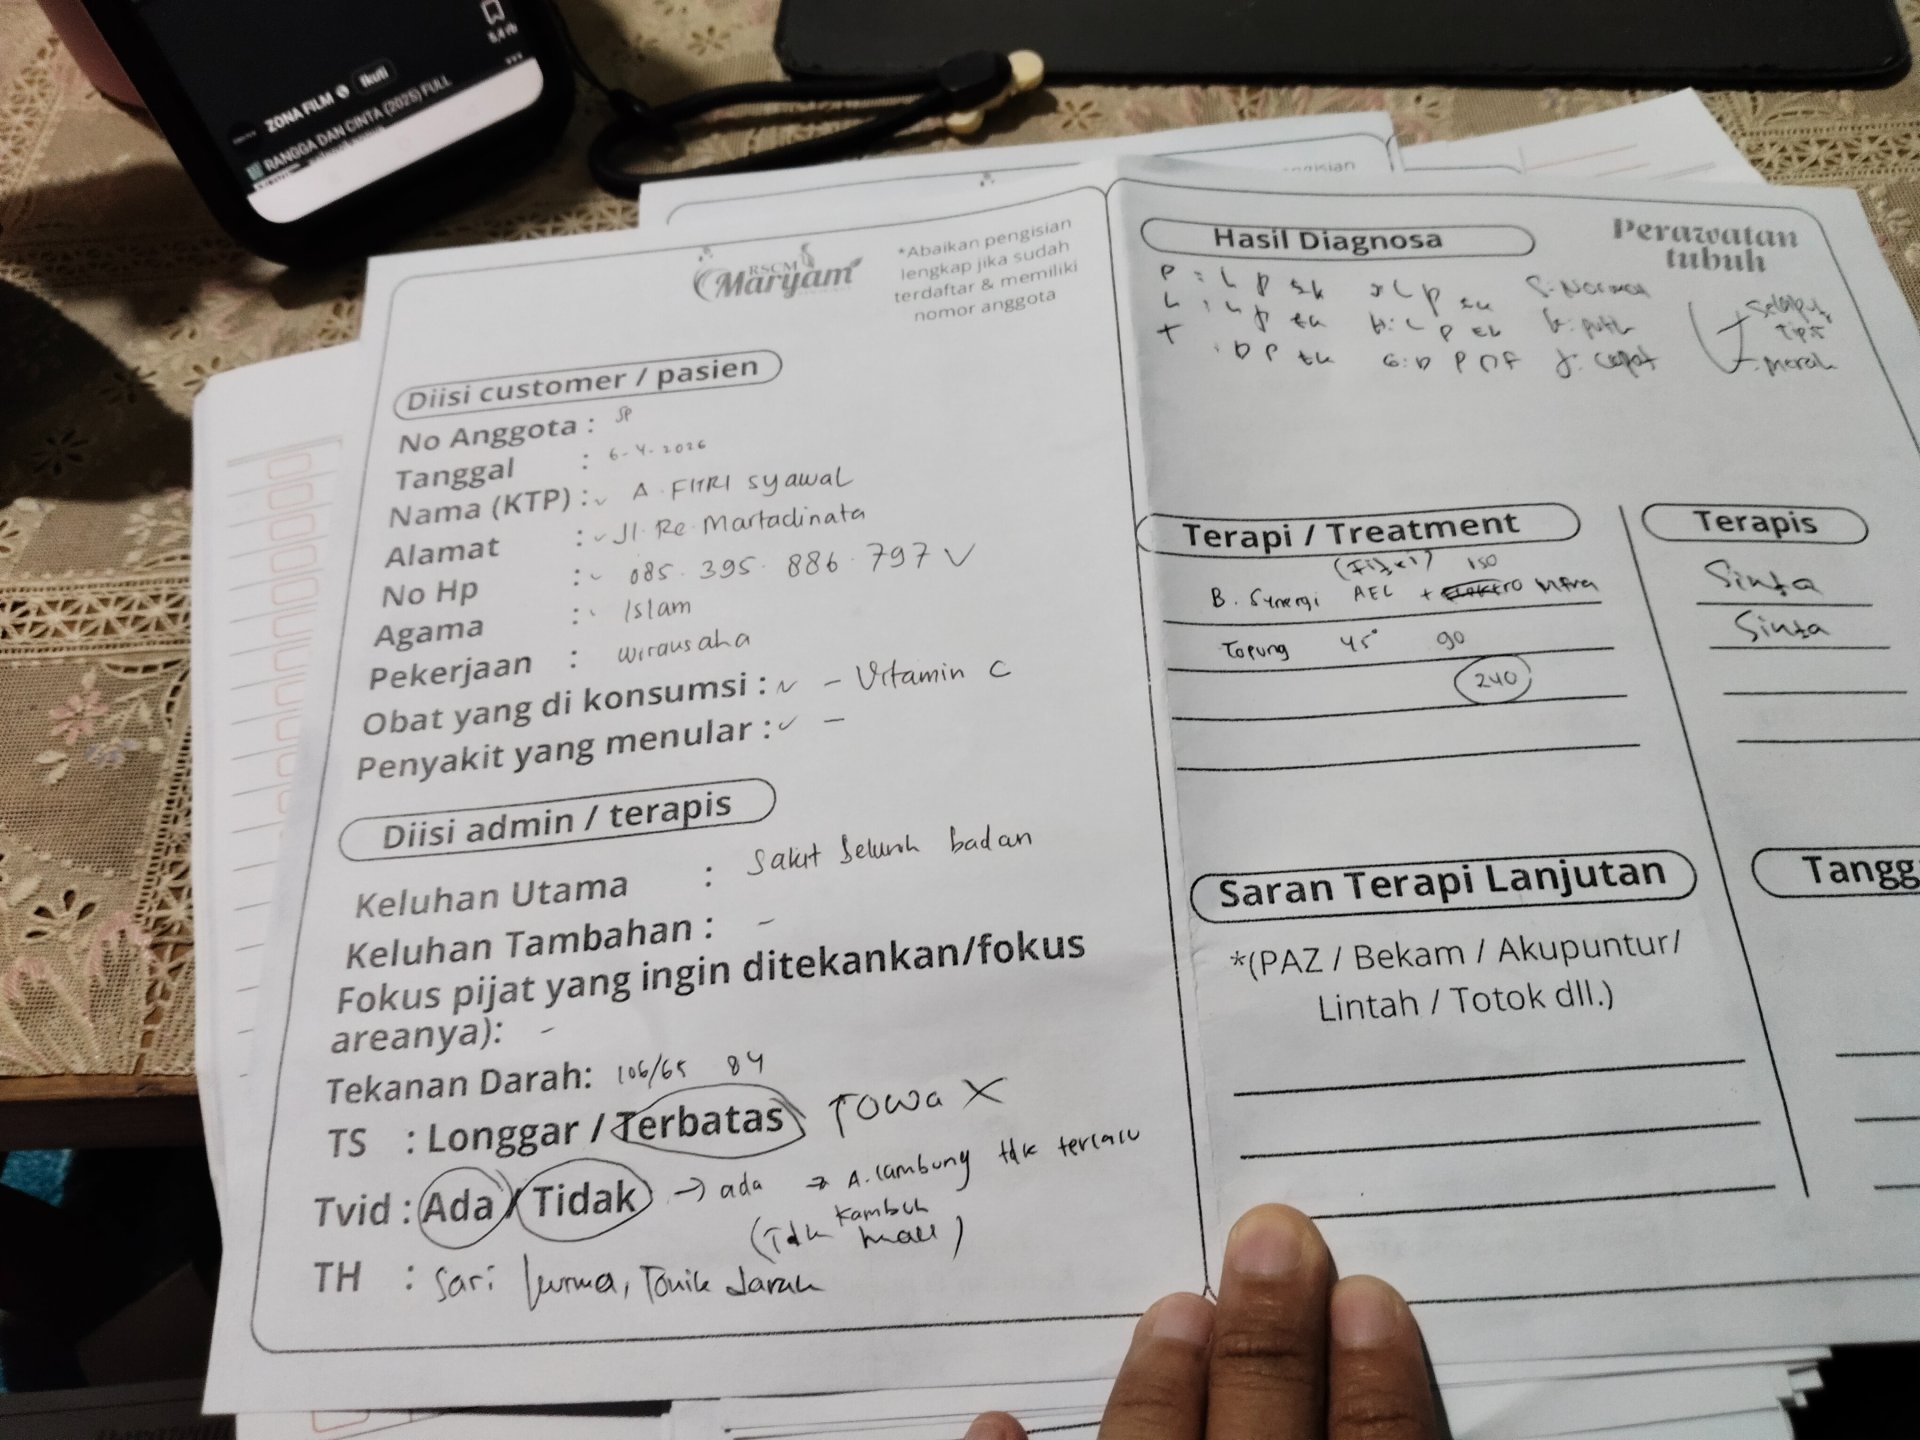 ZONA FILM
Ikuti
RANGGA DAN CINTA (2025) FULL
RSCM
Maryam
*Abaikan pengisian
lengkap jika sudah
terdaftar & memiliki
nomor anggota
Diisi customer / pasien
No Anggota : SP
Tanggal : 6-4-2026
Nama (KTP) : A. FITRI syawal
Alamat : Jl. Re. Martadinata
No Hp : 085. 395. 886. 797
Agama : Islam
Pekerjaan : wirausaha
Obat yang di konsumsi : - Vitamin C
Penyakit yang menular : -
Diisi admin / terapis
Keluhan Utama : Sakit Seluruh badan
Keluhan Tambahan : -
Fokus pijat yang ingin ditekankan/fokus
areanya): -
Tekanan Darah: 106/65 84
TS : Longgar / Terbatas Towa X
Tvid : Ada / Tidak → ada → A. lambung tdk terlalu
kambuh
(Tdk
TH : Sari kurma, Tonik Darah
Perawatan
tubuh
Hasil Diagnosa
P : L P
S: Normal
L
T : D P
Merah
Terapi / Treatment
150
B. Synergi AEC + Infra
Topung 45" 90
240
Terapis
Sinta
Sinta
Saran Terapi Lanjutan
*(PAZ / Bekam / Akupuntur/
Lintah / Totok dll.)
Tangg